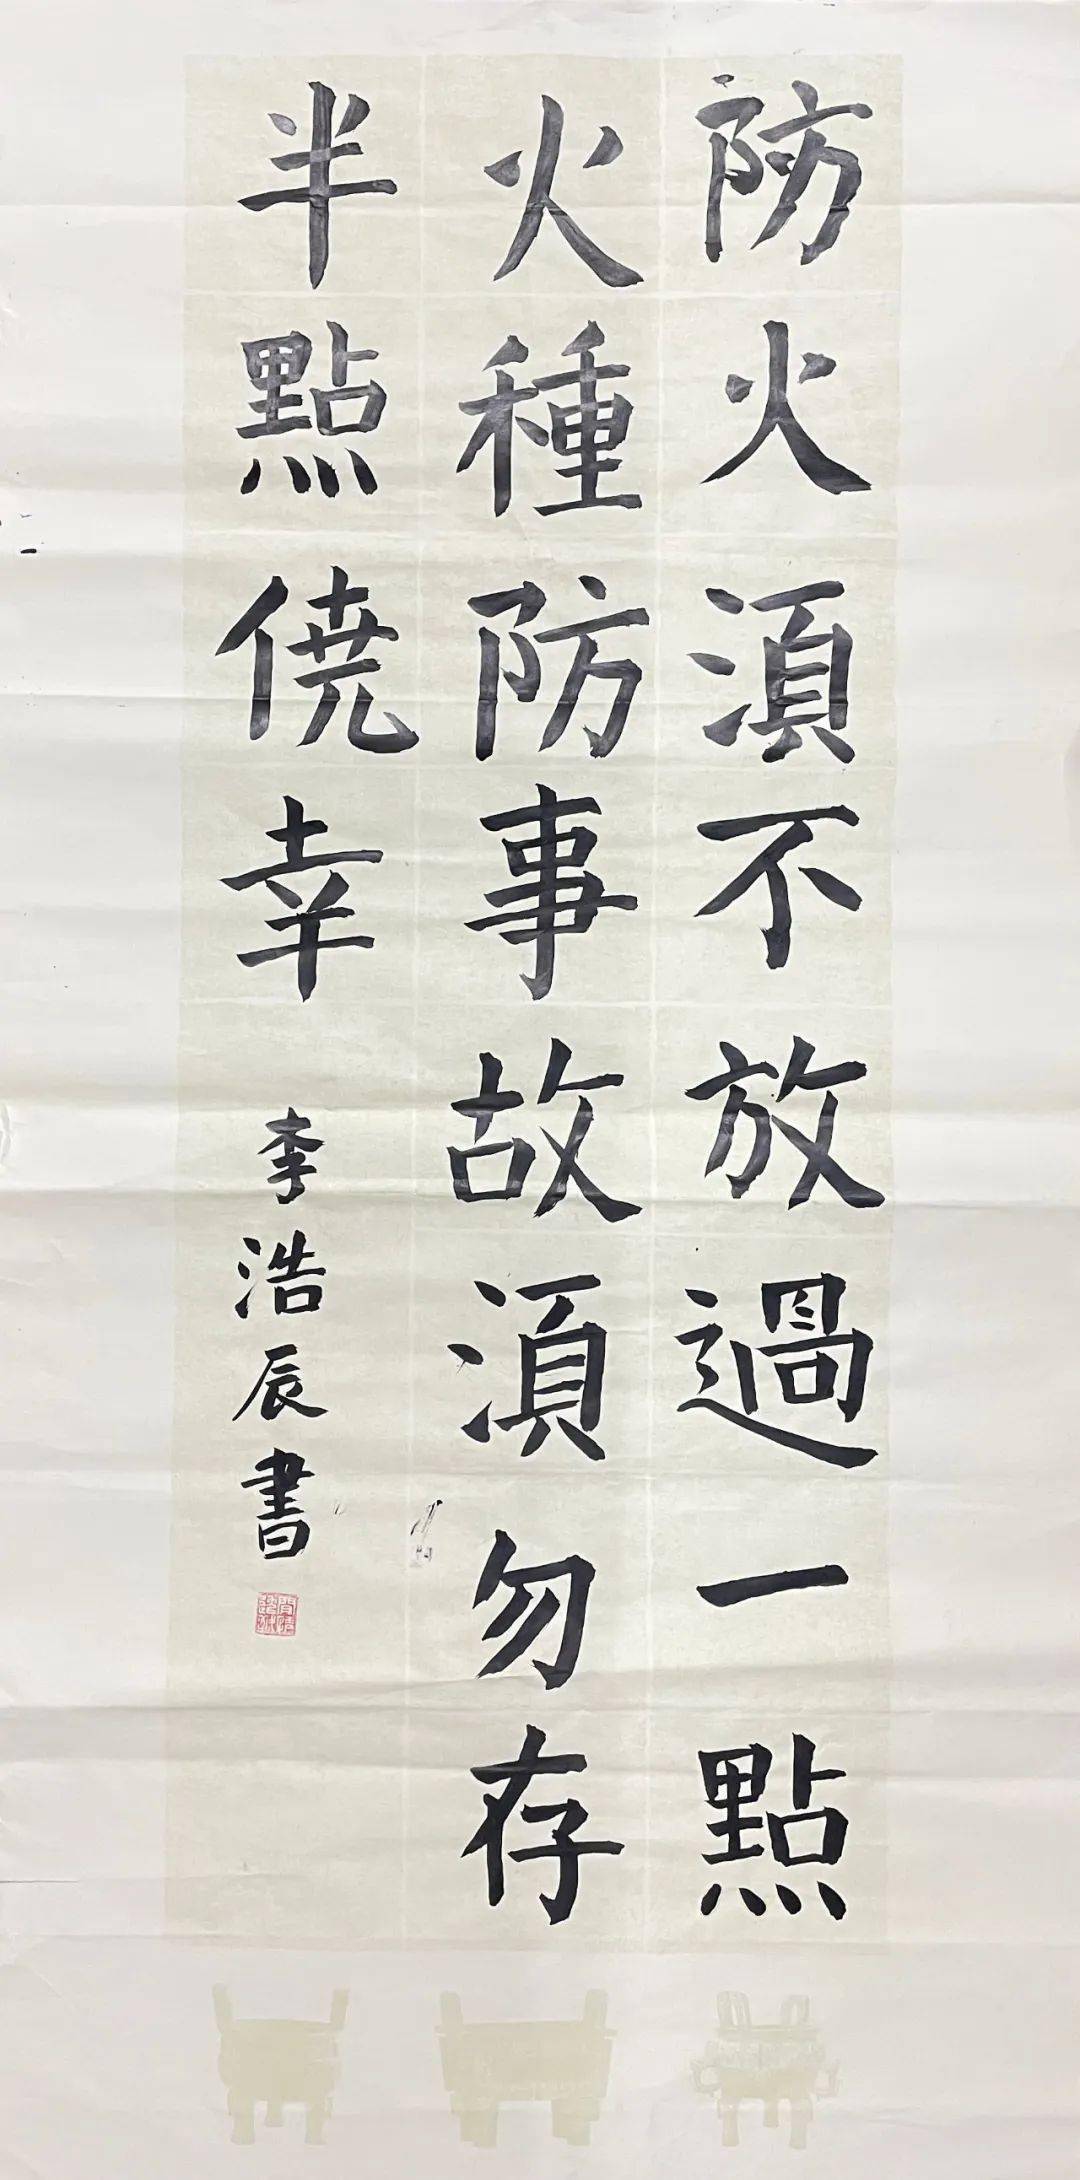 防火湏不放過一點
火種防事故湏勿存
半點僥幸
李浩辰書